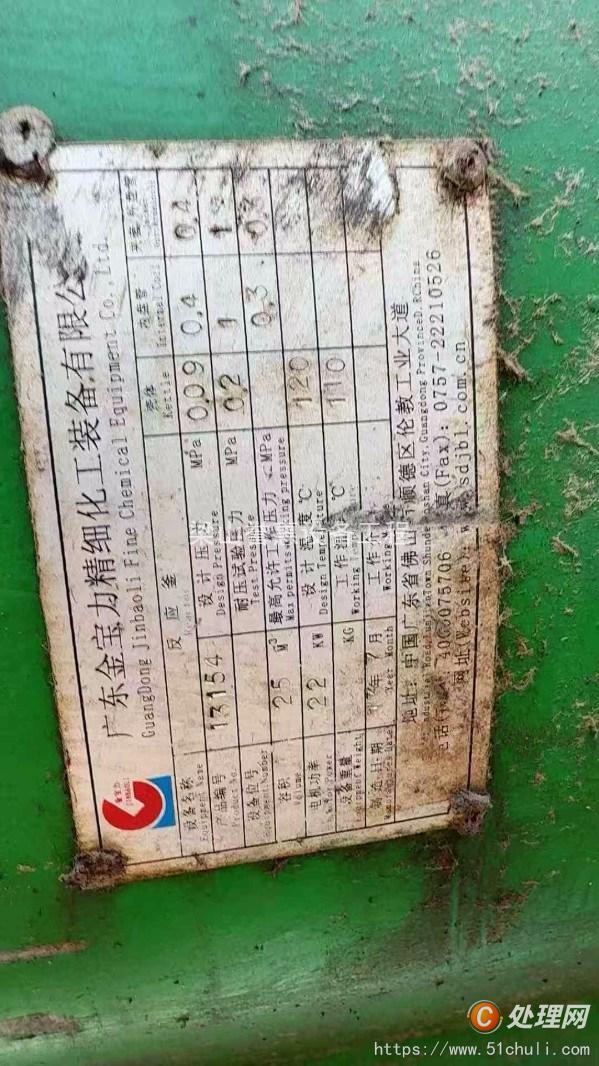 广东金宝力精细化工装备有限公
GuangDong Jinbaoli Fine Chemical Equipment Co., Ltd.
金宝力
JINBAOLI
设备名称 反应釜 壳体 内盘管 夹套/外盘管
Equipment Name Reactor Kettle Internal Coil
产品编号 13154 设计压 MPa 0.09 0.4 0.4
Product No. Design Pressure
设备位号 耐压试验压力 MPa 0.2 1 1.
Equipment Number Test Pressure
容积 25 M³ 最高允许工作压力 MPa 0.3 0.3
Volume Max permits working pressure
电机功率 22 KW 设计温度 ℃ 120
Motor Power Design Temperature
设备重量 KG 工作温 ℃ 110
Equipment Weight Working
制造日期 年7月 工作
Year Month Working
地址: 中国广东省佛山 顺德区伦教工业大道
City, Guangdong Province, P.R.China
电话 4000075706 真(Fax): 0757-22210526
网址(Website): sdjbl.com.cn
处理网
https://www.51chuli.com